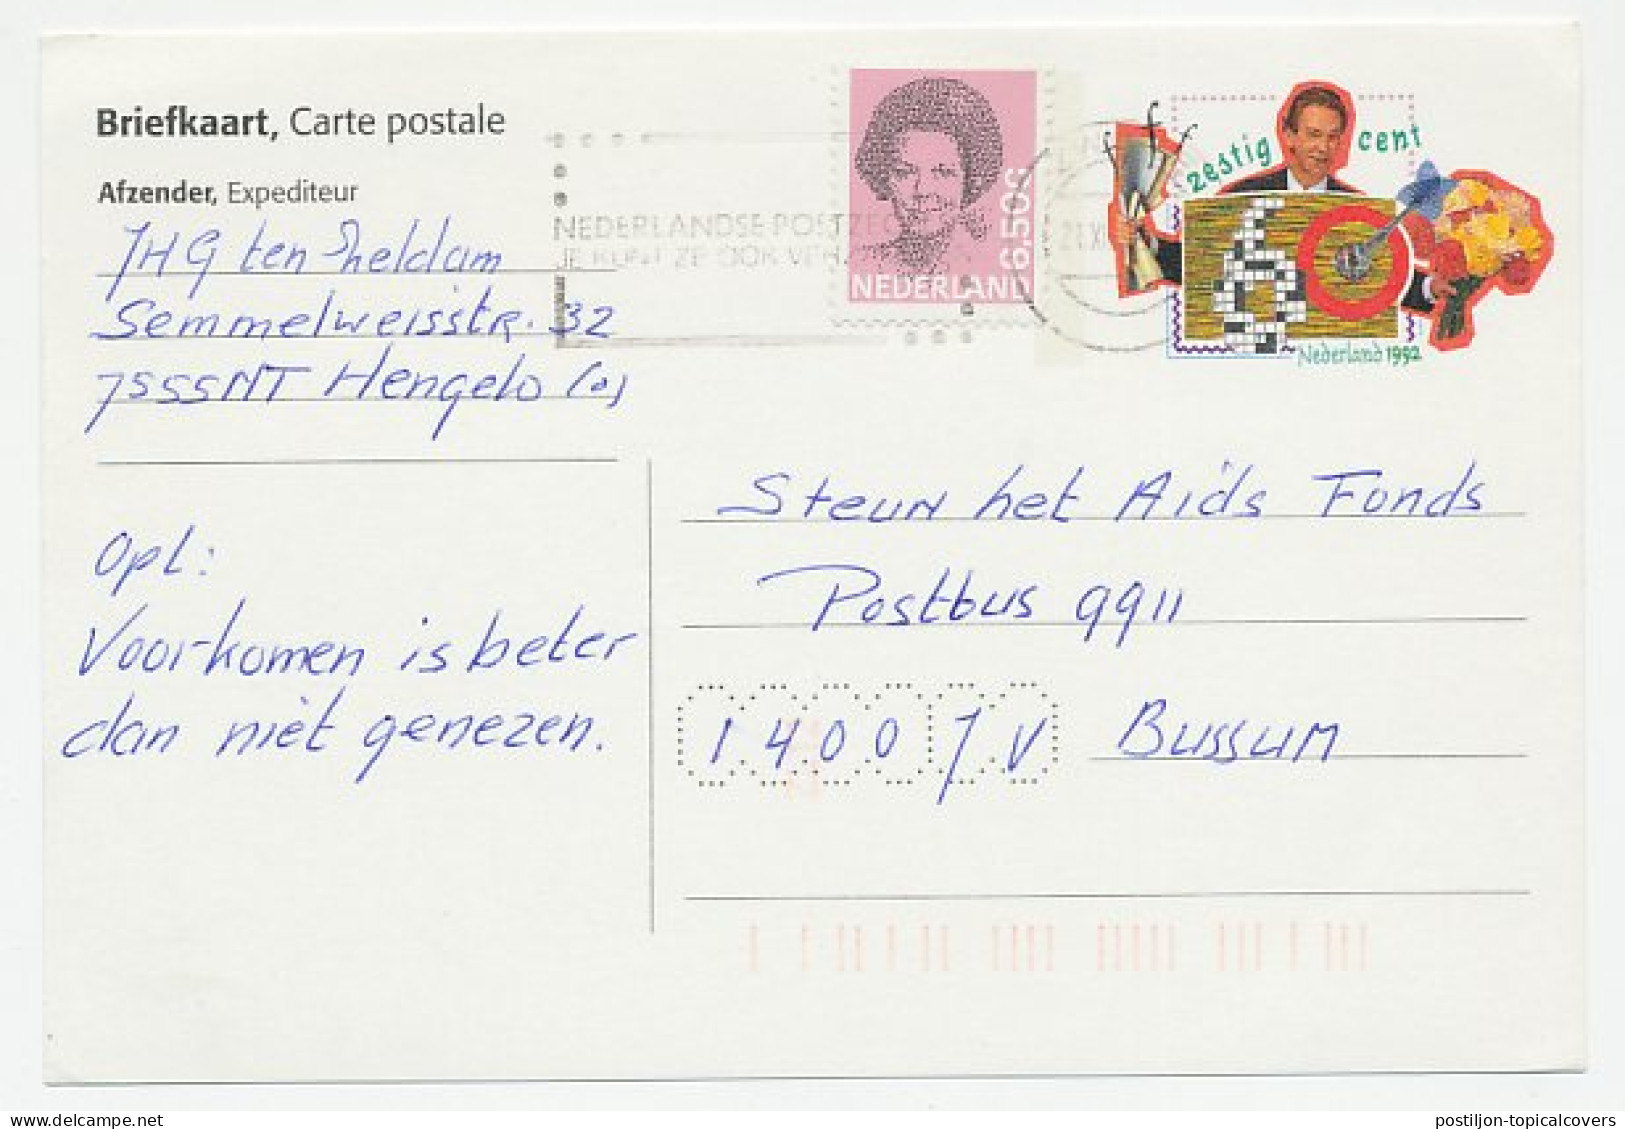 Briefkaart, Carte postale
Afzender, Expediteur
JHG ten Sheldam
Semmelweisstr. 32
7555NT Hengelo (o)
NEDERLANDSE POSTZE
JE KUNT ZE OOK
6,50G
NEDERLAND
21 XI
fff
zestig cent
Nederland 1992
Steun het Aids Fonds
Postbus 9911
1400 JV Bussum
Opl:
Voorkomen is beter
dan niet genezen.
postiljon-topicalcovers